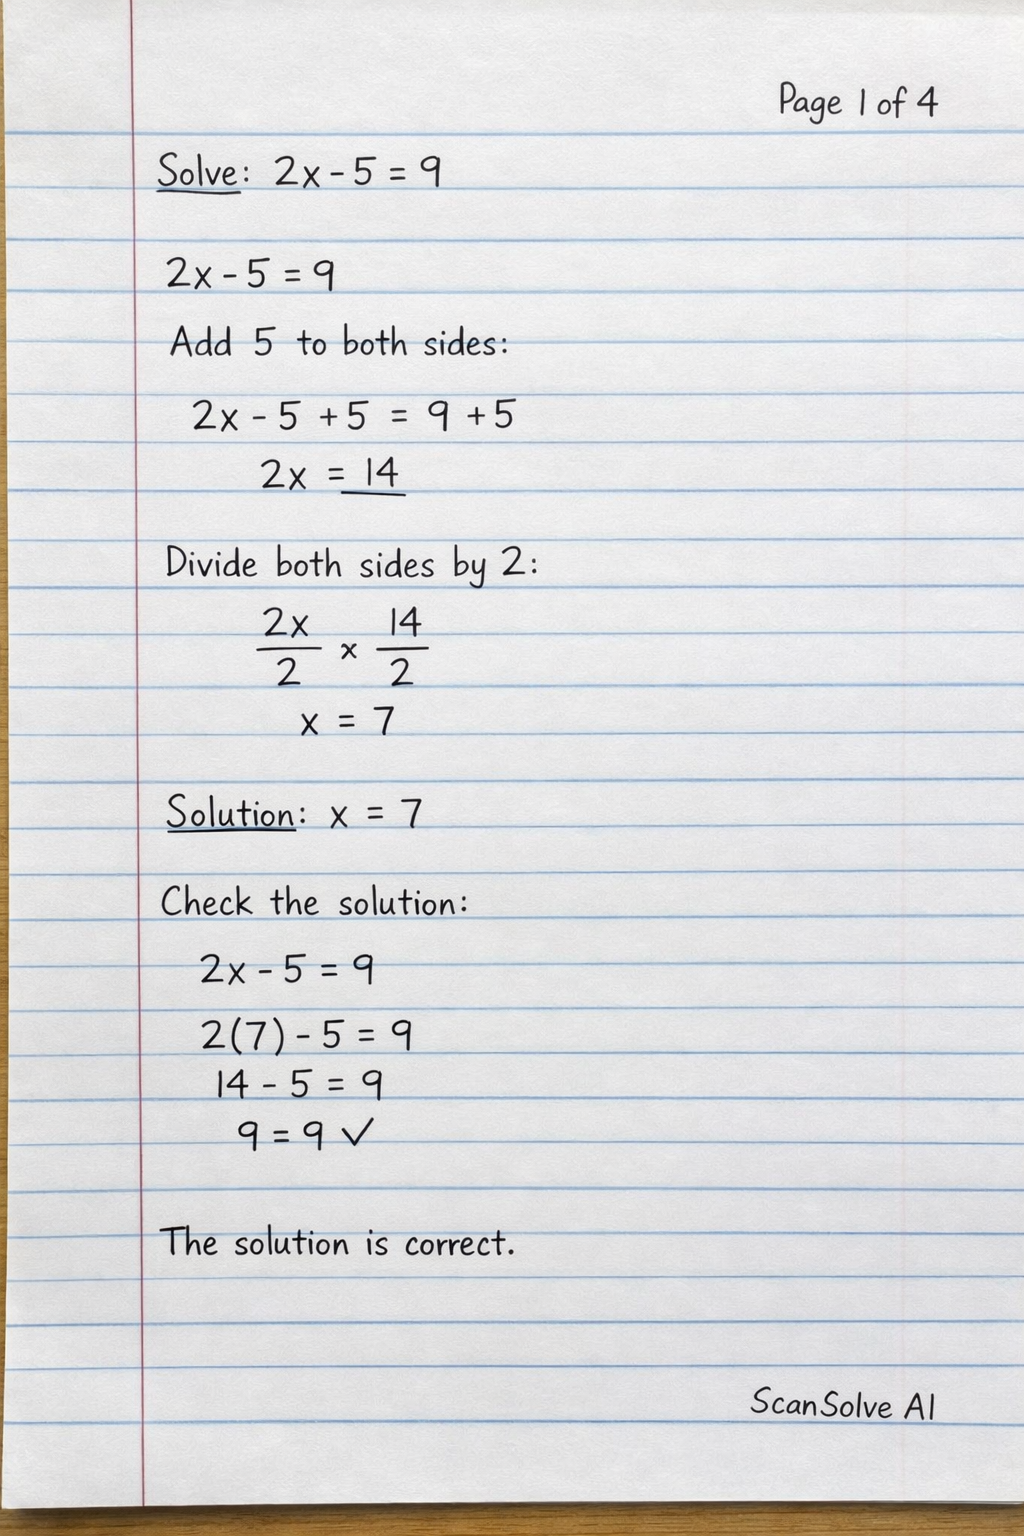 Page 1 of 4
Solve: 2x - 5 = 9
2x - 5 = 9
Add 5 to both sides:
2x - 5 + 5 = 9 + 5
2x = 14
Divide both sides by 2:
2x/2 x 14/2
x = 7
Solution: x = 7
Check the solution:
2x - 5 = 9
2(7) - 5 = 9
14 - 5 = 9
9 = 9 ✓
The solution is correct.
ScanSolve AI